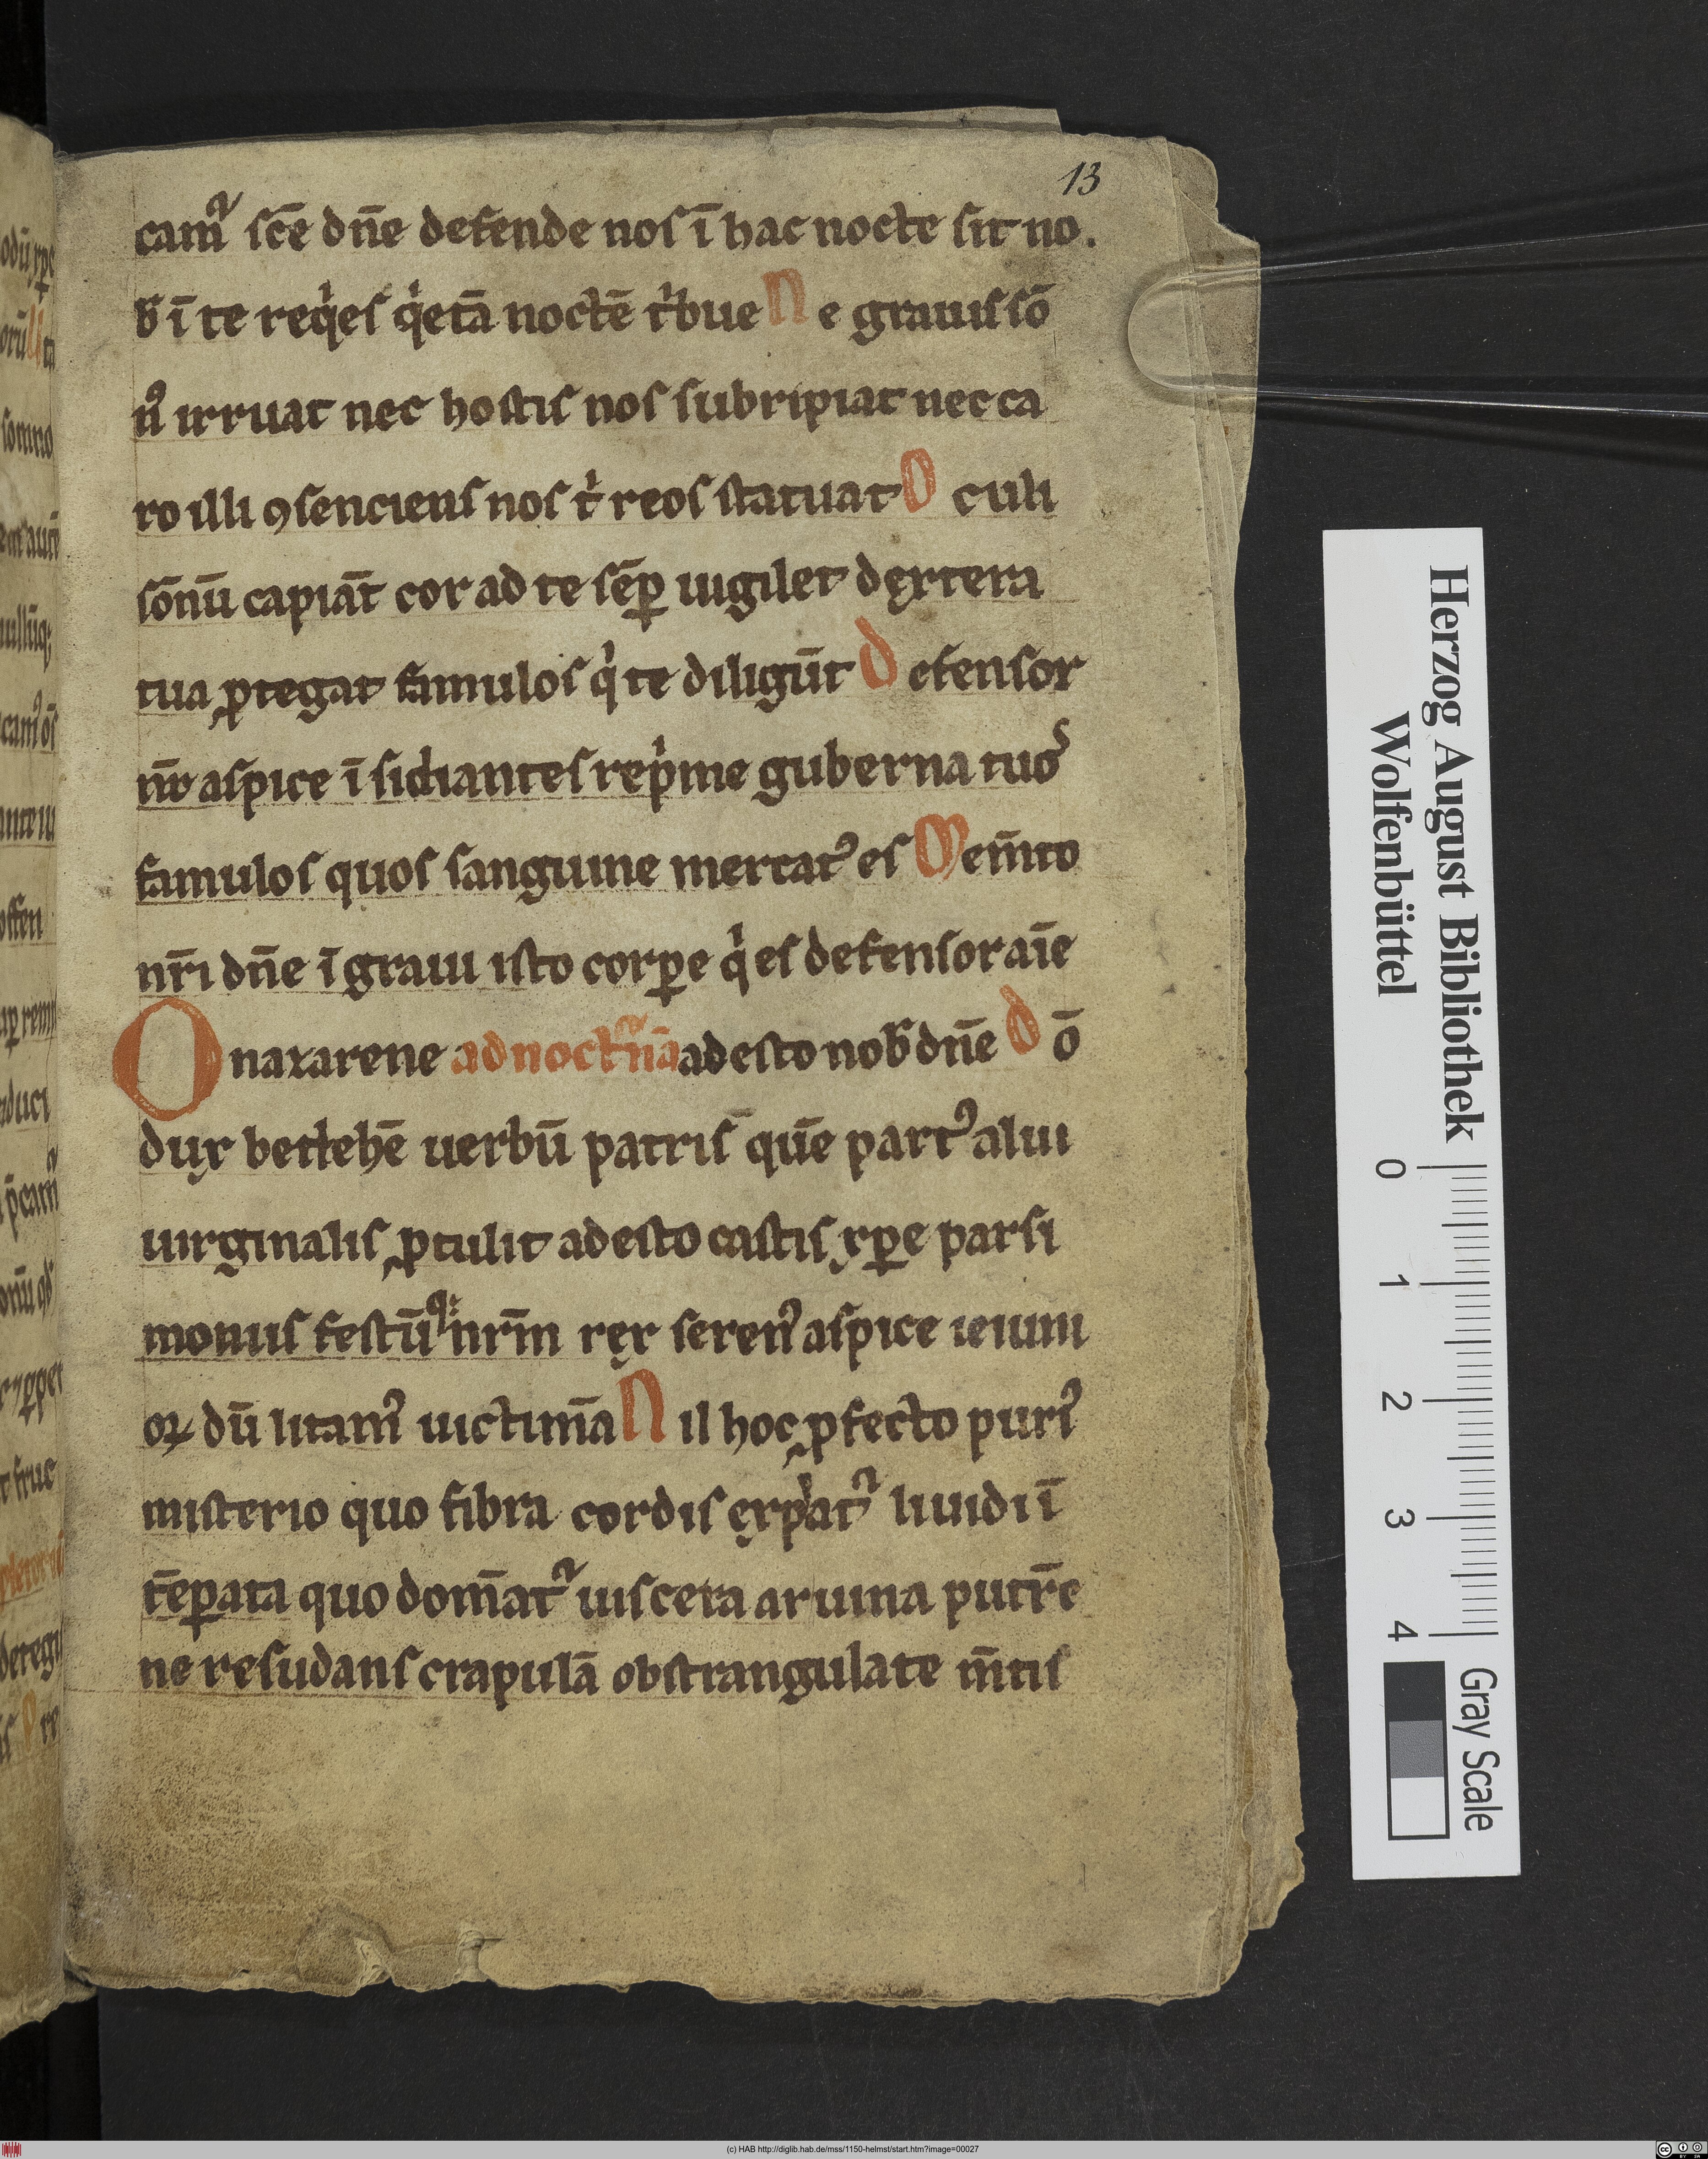 13
camᷣ sc̄e dn̄e defende nos ī hac nocte sit no.
b̄ ī te reqͥes qͥetā noctē tͥbue Ne grauis sō
nꝰ irruat nec hostis nos subripiat nec ca
ro illi ꝯsenciens nos tͥ reos statuat Oculi
sōnū capiāt cor ad te sēꝑ uigilet dextera
tua ꝓtegat famulos qͥ te diligūt Defensor
nr̄ aspice īsidiantes repͥme guberna tuos
famulos quos sanguine mercatꝰ es Mem̄to
nr̄i dn̄e ī graui isto corꝑe qͥ es defensor aīe
O naxarene ad noctᷣnā adesto nob̄ dn̄e dō
dux betlehē uerbū patris quē partꝰ alui
uirginalis ꝓtulit adesto castis xp̄e parsi
moniis festūqꝫ nr̄m rex serenꝰ aspice ieiuni
oꝝ dū litamꝰ uictimā Nil hoc ꝓfecto puriꝰ
misterio quo fibra cordis expͥatᷣ liuidi ī
tēꝑata quo domātᷣ uiscera aruina putr̄e
ne resudans crapulā obstrangulate m̄tis
Herzog August Bibliothek
Wolfenbüttel
0 1 2 3 4
Gray Scale
(c) HAB http://diglib.hab.de/mss/1150-helmst/start.htm?image=00027